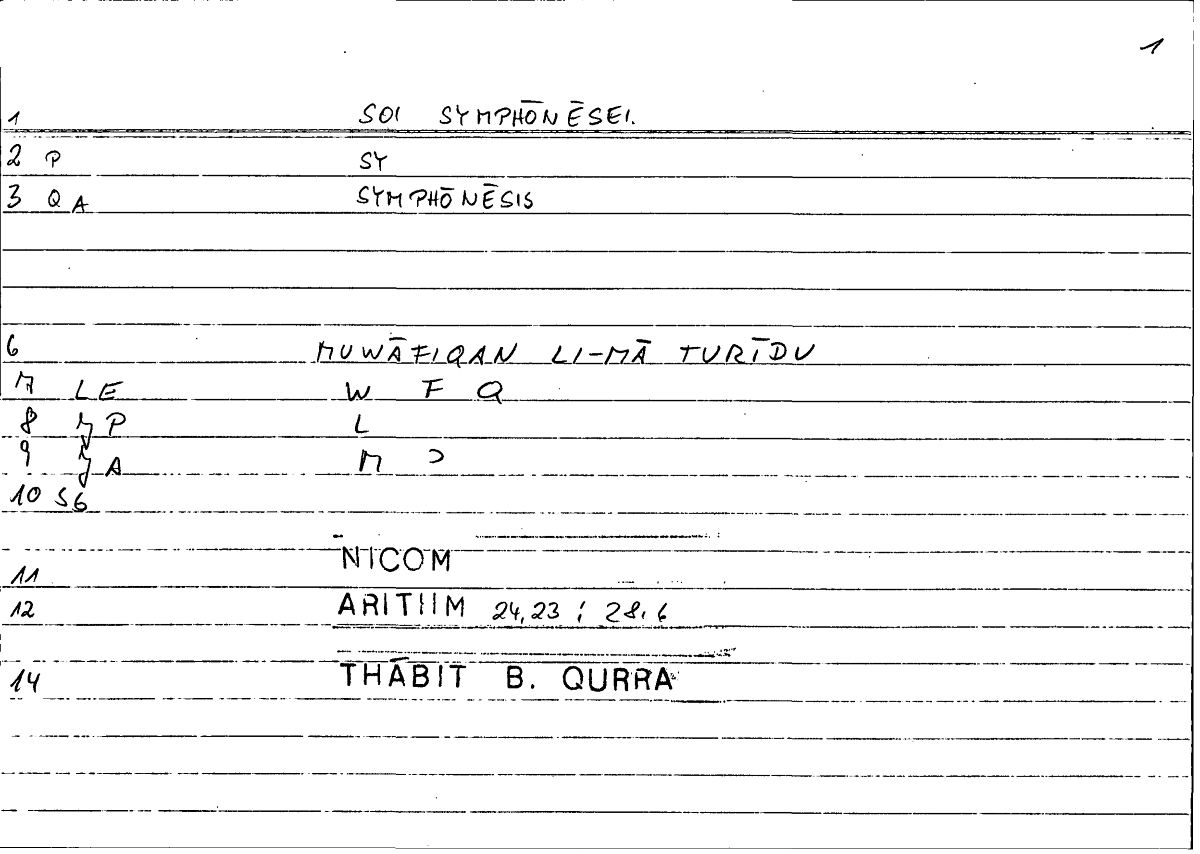 1
1 SOI SYMPHŌNĒSEI.
2 P SY
3 Q A SYMPHŌNĒSIS
6 MUWĀFIQAN LI-MĀ TURĪDU
7 LE W F Q
8 P L
9 A M Ɔ
10 S6
11 NICOM
12 ARITIIM 24,23 ; 28,6
14 THĀBIT B. QURRA